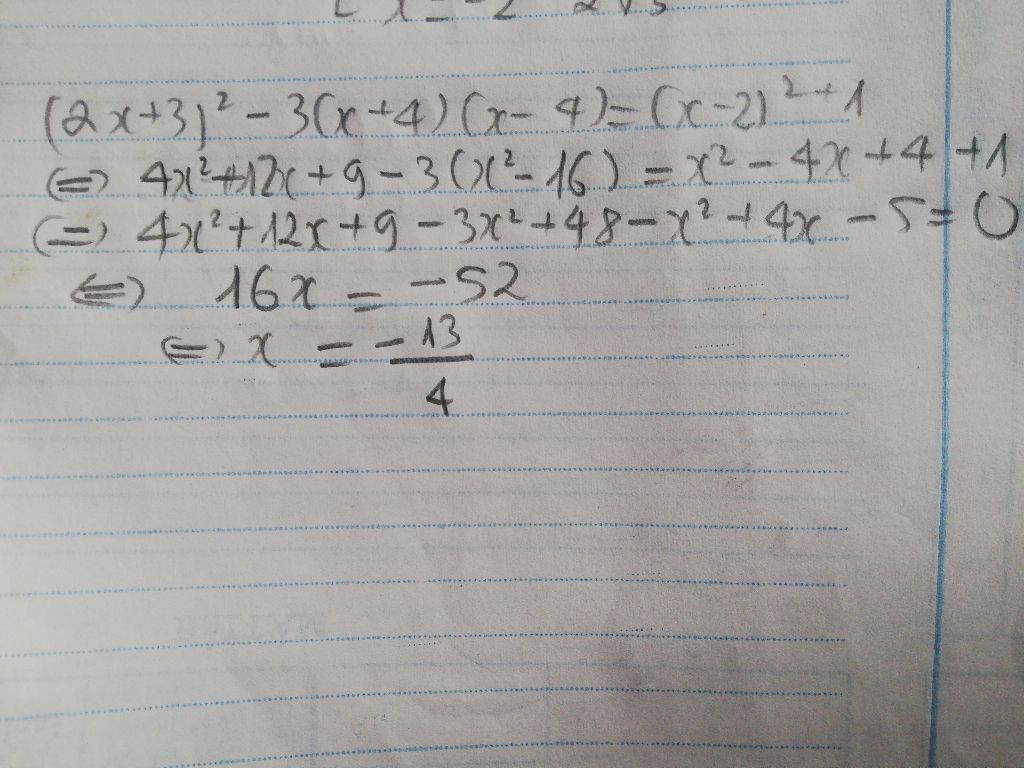 (2x+3)² - 3(x+4)(x-4)=(x-2)²+1
⇔ 4x²+12x+9-3(x²-16)=x²-4x+4+1
⇔ 4x²+12x+9-3x²+48-x²+4x-5=0
⇔ 16x = -52
⇔ x = -13/4